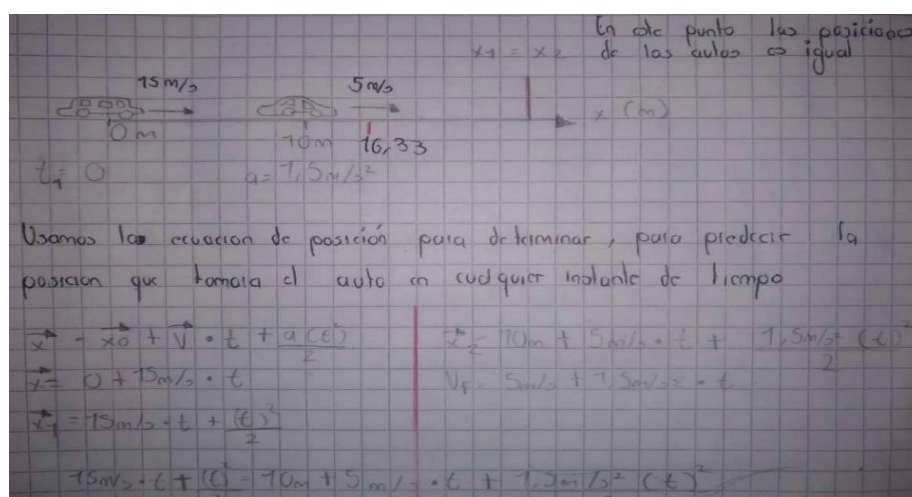 En ese punto las posiciones
x1 = x2 de los autos es igual
15m/s 5m/s
x (m)
0m 10m 16,33
t1= 0 a= 1,5m/s²
Usamos las ecuacion de posición para determinar, para predecir la
posicion que tomara el auto en cualquier instante de tiempo
x = x0 + v • t + a(t)²/2
x2= 10m + 5m/s • t + 1,5m/s² (t)²/2
x= 0 + 15m/s • t
Vf= 5m/s + 1,5m/s² • t
x1 = 15m/s • t + (t)²/2
15m/s • t + (t)² = 10m + 5m/s • t + 1,5m/s² (t)²